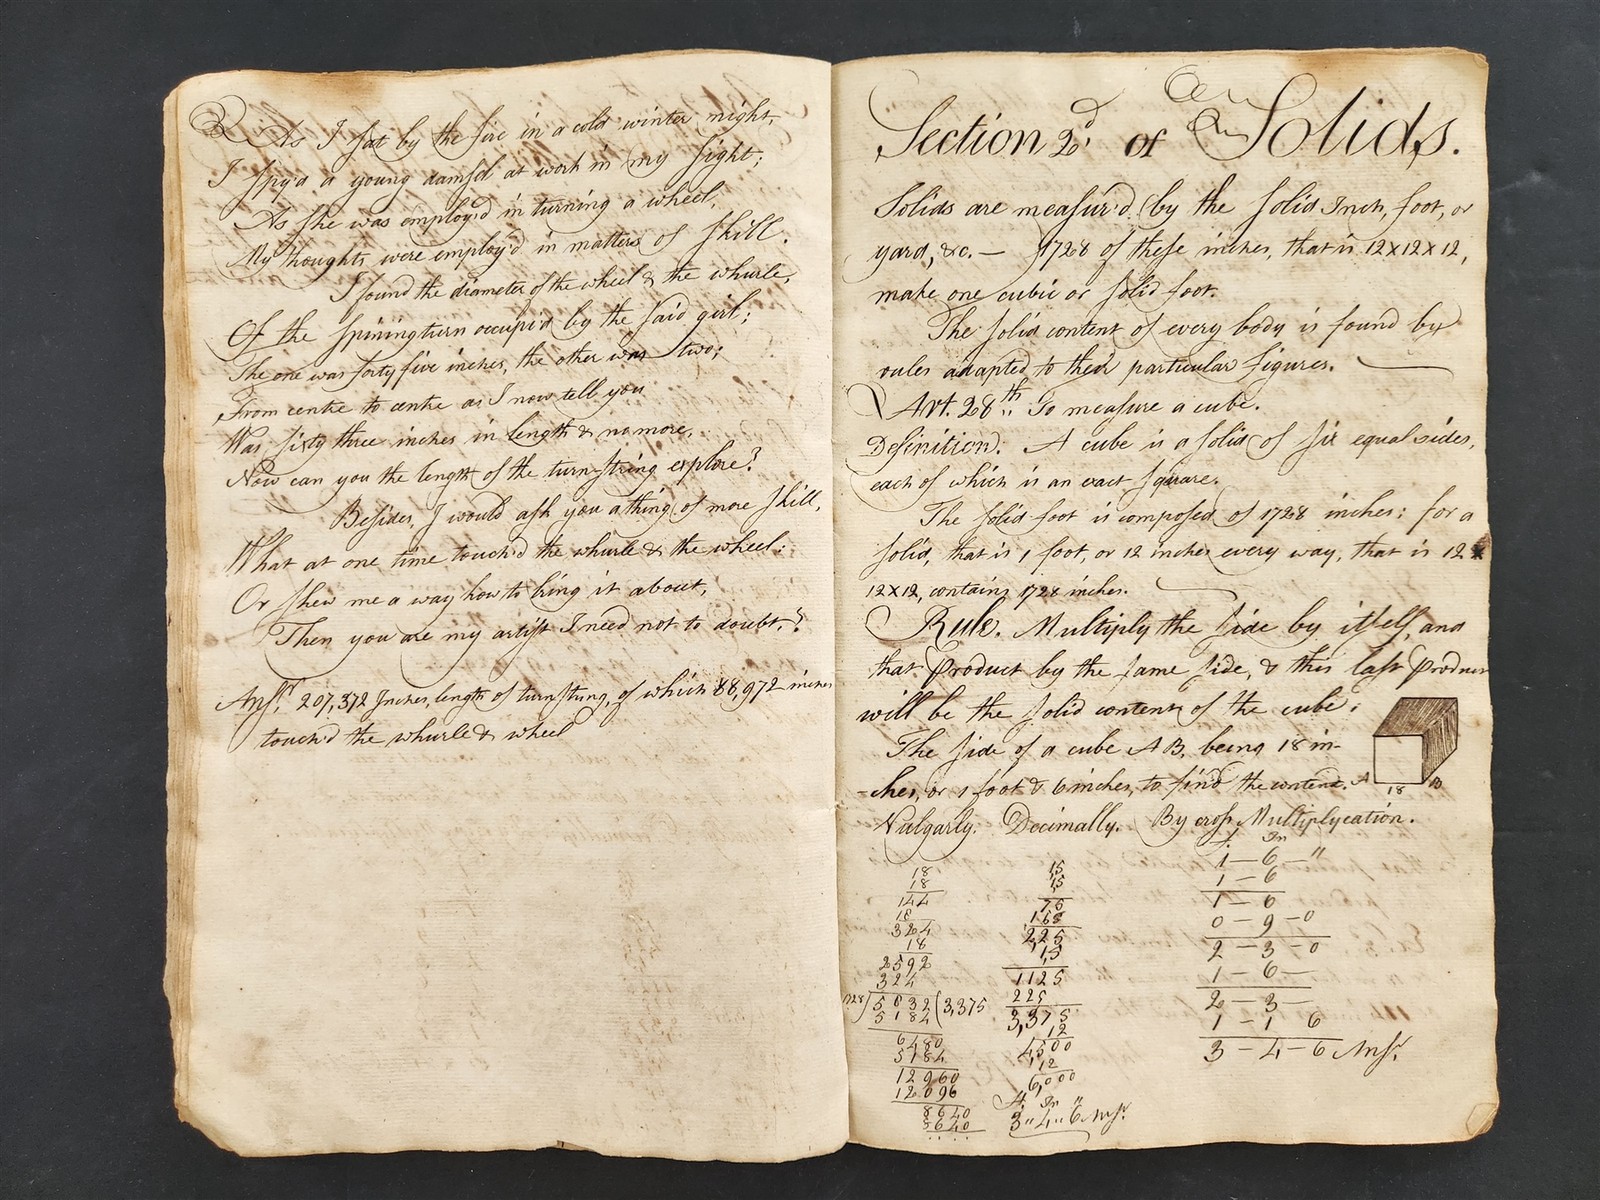 As I sat by the fire in a cold winter night,
I spy'd a young damsel at work in my sight;
As she was employ'd in turning a wheel,
My thoughts were employ'd in matters of skill.
I found the diameter of the wheel & the whurle,
Of the spiningturn occupi'd by the said girl;
The one was forty five inches, the other was two;
From centre to centre as I now tell you
Was sixty three inches in length & no more,
Now can you the length of the turn-string explore?
Besides, I would ask you a thing of more skill,
What at one time touch'd the whurle & the wheel:
Or shew me a way how to bring it about,
Then you are my artist I need not to doubt,?
Ansr. 207,372 Inches, length of turnstring, of which 88,972 inches
touch'd the whurle & wheel
Section 2d. of Solids.
Solids are measur'd by the solid Inch, foot, or
yard, &c. — 1728 of these inches, that is 12x12x12,
make one cubic or solid foot.
The solid content of every body is found by
rules adapted to their particular figures.
Art. 28th.. To measure a cube.
Definition. A cube is a solid of six equal sides,
each of which is an exact square.
The solid foot is composed of 1728 inches; for a
solid, that is 1 foot, or 12 inches every way, that is 12 x
12x12, contains 1728 inches.
Rule. Multiply the side by itself, and
that product by the same side, & this last product
will be the solid content of the cube.
The side of a cube AB, being 18 in-
-ches, or 1 foot & 6 inches, to find the content.
A 18 B
Vulgarly. Decimally. By cross Multiplycation.
18
18
144
18
324
18
2592
324
1728)5832(3,375
5184
6480
5184
12960
12096
8640
8640
....
1,5
1,5
75
15
2,25
1,5
1125
225
3,375
12
4,500
12
6,000
f. In "
3 " 4 " 6 Ansr.
f. In
1 — 6 — "
1 — 6
1 — 6
0 — 9 — 0
2 — 3 — 0
1 — 6 —
2 — 3 —
1 — 1 6
3 — 4 — 6 Ansr.